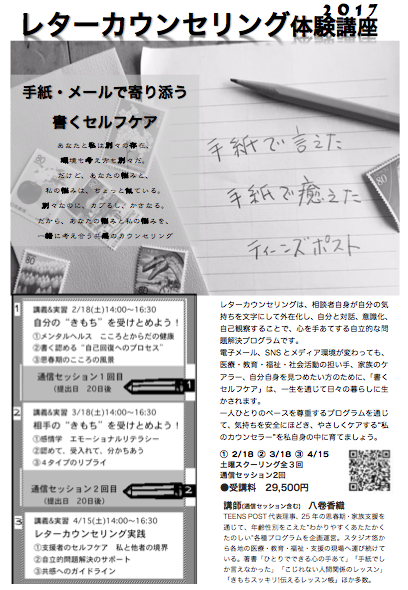 レターカウンセリング体験講座
2017
手紙・メールで寄り添う
書くセルフケア
あなたと私は別々の存在、
環境も考え方も別々だ。
だけど、あなたの悩みと、
私の悩みは、ちょっと似ている。
別々なのに、カブるし、かさなる。
だから、あなたの悩みと私の悩みを、
一緒に考え合う共感のカウンセリング
手紙で言えた
手紙で癒えた
ティーンズポスト
80
80
80
1
講義&実習 2/18(土)14:00〜16:30
自分の“きもち”を受けとめよう！
①メンタルヘルス こころとからだの健康
②書く認める“自己回復へのプロセス”
③思春期のこころの風景
通信セッション1回目
（提出日 20日後
1
2
講義&実習 3/18(土)14:00〜16:30
相手の“きもち”を受けとめよう！
①感情学 エモーショナルリテラシー
②認めて、受入れて、分かちあう
③４タイプのリプライ
通信セッション２回目
（提出日 20日後）
2
3
講義&実習 4/15(土)14:00〜16:30
レターカウンセリング実践
①支援者のセルフケア 私と他者の境界
②自立的問題解決のサポート
③共感へのガイドライン
レターカウンセリングは、相談者自身が自分の気
持ちを文字にして外在化し、自分と対話、意識化、
自己観察することで、心を手あてする自立的な問
題解決プログラムです。
電子メール、SNSとメディア環境が変わっても、
医療・教育・福祉・社会活動の担い手、家族のケ
アラー、自分自身を見つめたい方のために、「書く
セルフケア」は、一生を通じて日々の暮らしに生
かされます。
一人ひとりのペースを尊重するプログラムを通じ
て、気持ちを安全にほどき、やさしくケアする“私
のカウンセラー”を私自身の中に育てましょう。
① 2/18 ② 3/18 ③ 4/15
土曜スクーリング全３回
通信セッション2回
●受講料 29,500円
講師(通信セッション含む) 八巻香織
TEENSPOST 代表理事。25年の思春期・家族支援を
通じて、年齢別をこえた“わかりやすくあたたかく
たのしい”各種プログラムを企画運営。スタジオ悠か
ら各地の医療・教育・福祉・支援の現場へ運び続けて
いる。著書「ひとりでできる心の手あて」「手紙でし
か言えなかった」「こじれない人間関係のレッスン」
「きもちスッキリ!伝えるレッスン帳」ほか多数。